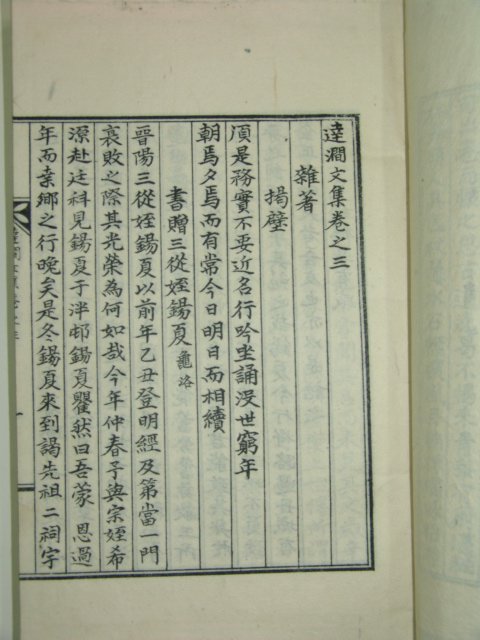 逹澗文集卷之三
雜著
揭壁
須是務實不要近名行吟坐誦沒世窮年
朝焉夕焉而有常今日明日而相續
書贈三從姪錫夏 龜洛
晉陽三從姪錫夏以前年乙丑登明經及第當一門
衰敗之際其光榮為何如哉今年仲春予與宗姪希
源赴廷科見錫夏于泮邨錫夏瞿然曰吾蒙 恩過
年而桒鄉之行晚矣是冬錫夏來到謁先祖二祠宇